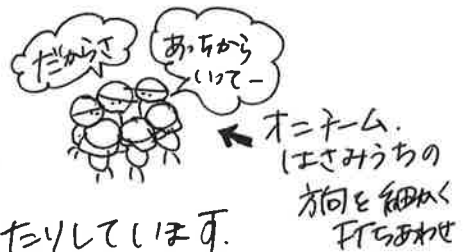 だからさ
あっちから
いってー
オニチーム.
はさみうちの
方向を細かく
打ちあわせ
たりしています.